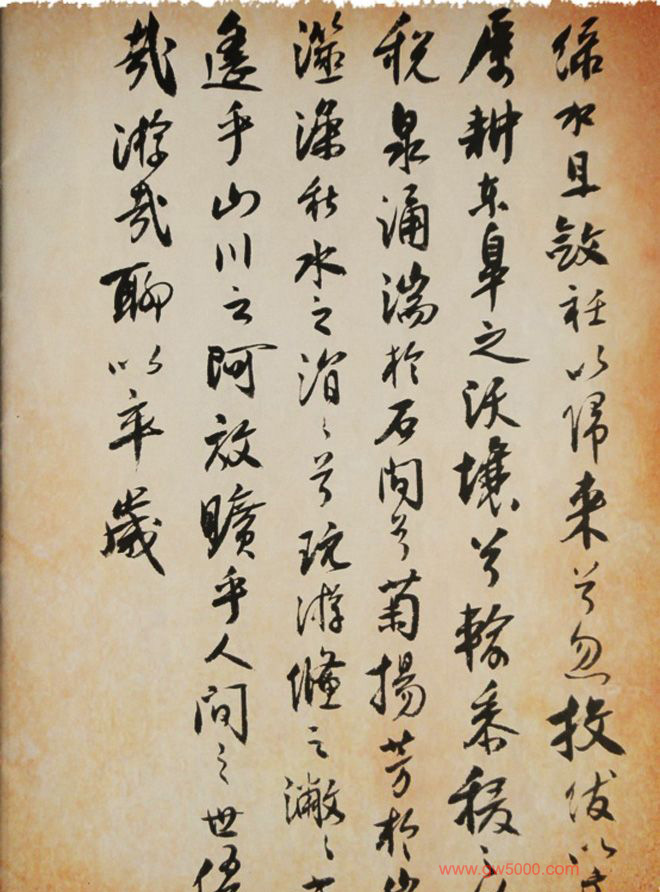 綠水且斂衽以歸來兮忽投紱以
厲耕東皋之沃壤兮輸黍稷之
稅泉涌湍於石間兮菊揚芳於
澨澡秋水之涓〻兮玩游鯈之潎〻
遙乎山川之阿放曠乎人間之世優
哉游哉聊以卒歲
www.gw5000.com